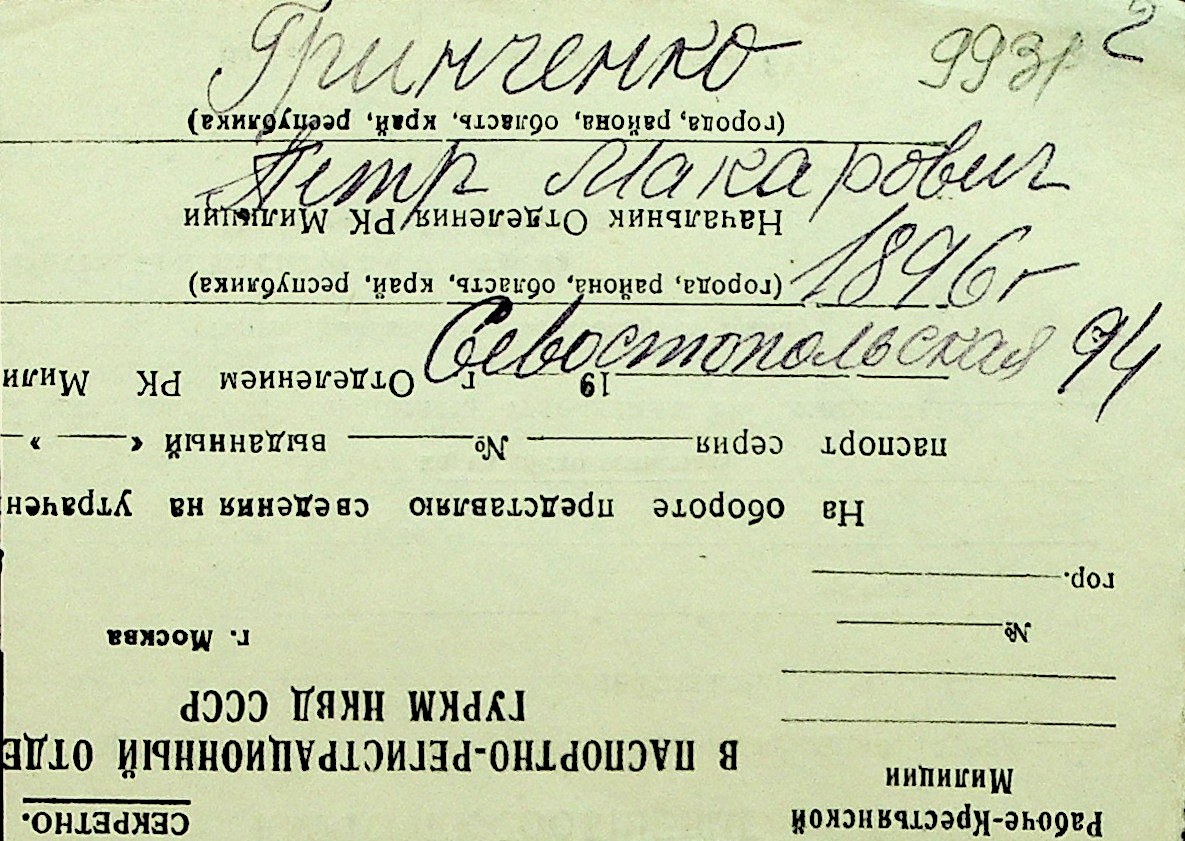 Гринченко 993р 2
Петр Макарович
1896 г
Севостопольская 94
СЕКРЕТНО.
Рабоче-Крестьянской
Милиции
№
гор.
В ПАСПОРТНО-РЕГИСТРАЦИОННЫЙ ОТДЕ
ГУРКМ НКВД СССР
г. Москва
На обороте представляю сведения на утрачен
паспорт серия № выданный « »
19 г Отделением РК Мили
(города, района, область, край, республика)
Начальник Отделения РК Милиции
(города, района, область, край, республика)